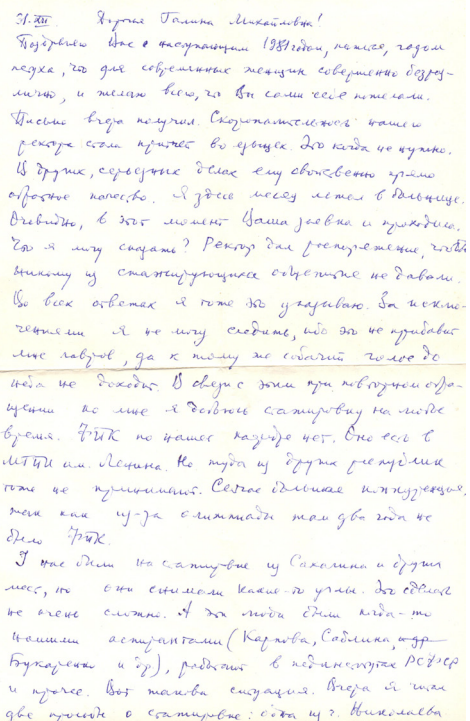 31.XII Дорогая Галина Михайловна!
Поздравляю Вас с наступающим 1981 годом, кажется, годом
петуха, что для современных женщин совершенно безраз-
лично, и желаю всего, что Вы сами себе пожелали.
Письмо вчера получил. Скоропалительность нашего
ректора стала притчей во языцех. Это когда не нужно.
В других, серьезных делах ему свойственно прямо
обратное качество. Я здесь месяц лежал в больнице.
Очевидно, в этот момент Ваша заявка и проходила.
Что я могу сказать? Ректор дал распоряжение, чтоб
никому из стажирующихся общежитие не давали.
Во всех ответах я тоже это указываю. За исклю-
чениями я не могу следить, ибо это не прибавит
мне лавров, да к тому же собачий голос до
неба не доходит. В связи с этим при повторном обра-
щении ко мне я добьюсь стажировку на любое
время. ФПК по нашей кафедре нет. Оно есть в
МГПИ им. Ленина. Но туда из других республик
тоже не принимают. Сейчас большая конкуренция,
так как из-за олимпиады там два года не
было ФПК.
У нас были на стажировке из Сахалина и других
мест, но они снимали какие-то углы. Это сделать
не очень сложно. А эти люди были когда-то
нашими аспирантами (Карпова, Саблина,
и др), работают в пединститутах РСФСР
и прочее. Вот такова ситуация. Вчера я читал
две просьбы о стажировке: одна из г. Николаева